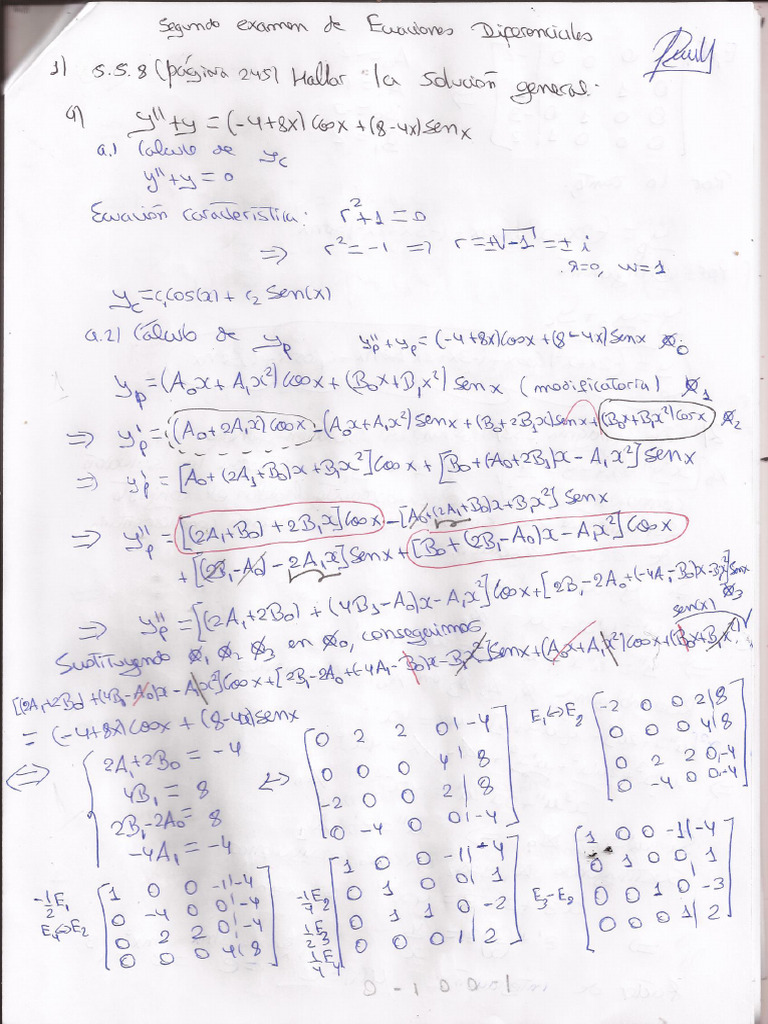 Segundo examen de Ecuaciones Diferenciales
1) 5.5.8 (página 245) Hallar la solución general.
a) y'' + y = (-4+8x) cosx + (8-4x) senx
a.1) Cálculo de yc
y'' + y = 0
Ecuación característica: r² + 1 = 0
⇒ r² = -1 ⇒ r = ±√-1 = ± i
λ=0, w=1
yc = c₁cos(x) + c₂ sen(x)
a.2) Cálculo de yp yp'' + yp = (-4+8x)cosx + (8-4x)senx ∅₀
yp = (A₀x + A₁x²) cosx + (B₀x + B₁x²) senx (modificatoria) ∅₁
⇒ yp' = (A₀ + 2A₁x) cosx - (A₀x + A₁x²) senx + (B₀ + 2B₁x) senx + (B₀x + B₁x²) cosx ∅₂
⇒ yp' = [A₀ + (2A₁+B₀)x + B₁x²] cosx + [B₀ + (A₀+2B₁)x - A₁x²] senx
⇒ yp'' = [(2A₁+B₀) + 2B₁x] cosx - [A₀ + (2A₁+B₀)x + B₁x²] senx
+ [(2B₁-A₀) - 2A₁x] senx + [B₀ + (2B₁-A₀)x - A₁x²] cosx
⇒ yp'' = [(2A₁+2B₀) + (4B₁-A₀)x - A₁x²] cosx + [2B₁-2A₀ + (-4A₁-B₀)x - B₁x²] senx ∅₃
Sustituyendo ∅₁ ∅₂ ∅₃ en ∅₀, conseguimos sen(x)
[(2A₁+2B₀) + (4B₁-A₀)x - A₁x²] cosx + [2B₁-2A₀ + (-4A₁-B₀)x - B₁x²] senx + (A₀x + A₁x²) cosx + (B₀x + B₁x²)
= (-4+8x) cosx + (8-4x) senx
⇔ { 2A₁+2B₀ = -4
4B₁ = 8
2B₁-2A₀ = 8
-4A₁ = -4
↔ [ 0 2 2 0 | -4
0 0 0 4 | 8
-2 0 0 2 | 8
0 -4 0 0 | -4 ]
E₁↔E₂ [ -2 0 0 2 | 8
0 0 0 4 | 8
0 2 2 0 | -4
0 -4 0 0 | -4 ]
-1/2 E₁
E₄↔E₂ [ 1 0 0 -1 | -4
0 -4 0 0 | -4
0 2 2 0 | -4
0 0 0 4 | 8 ]
-1/4 E₂
1/2 E₃
1/4 E₄ [ 1 0 0 -1 | -4
0 1 0 0 | 1
0 1 1 0 | -2
0 0 0 1 | 2 ]
E₃-E₂ [ 1 0 0 -1 | -4
0 1 0 0 | 1
0 0 1 0 | -3
0 0 0 1 | 2 ]
0 -1 0 0 1